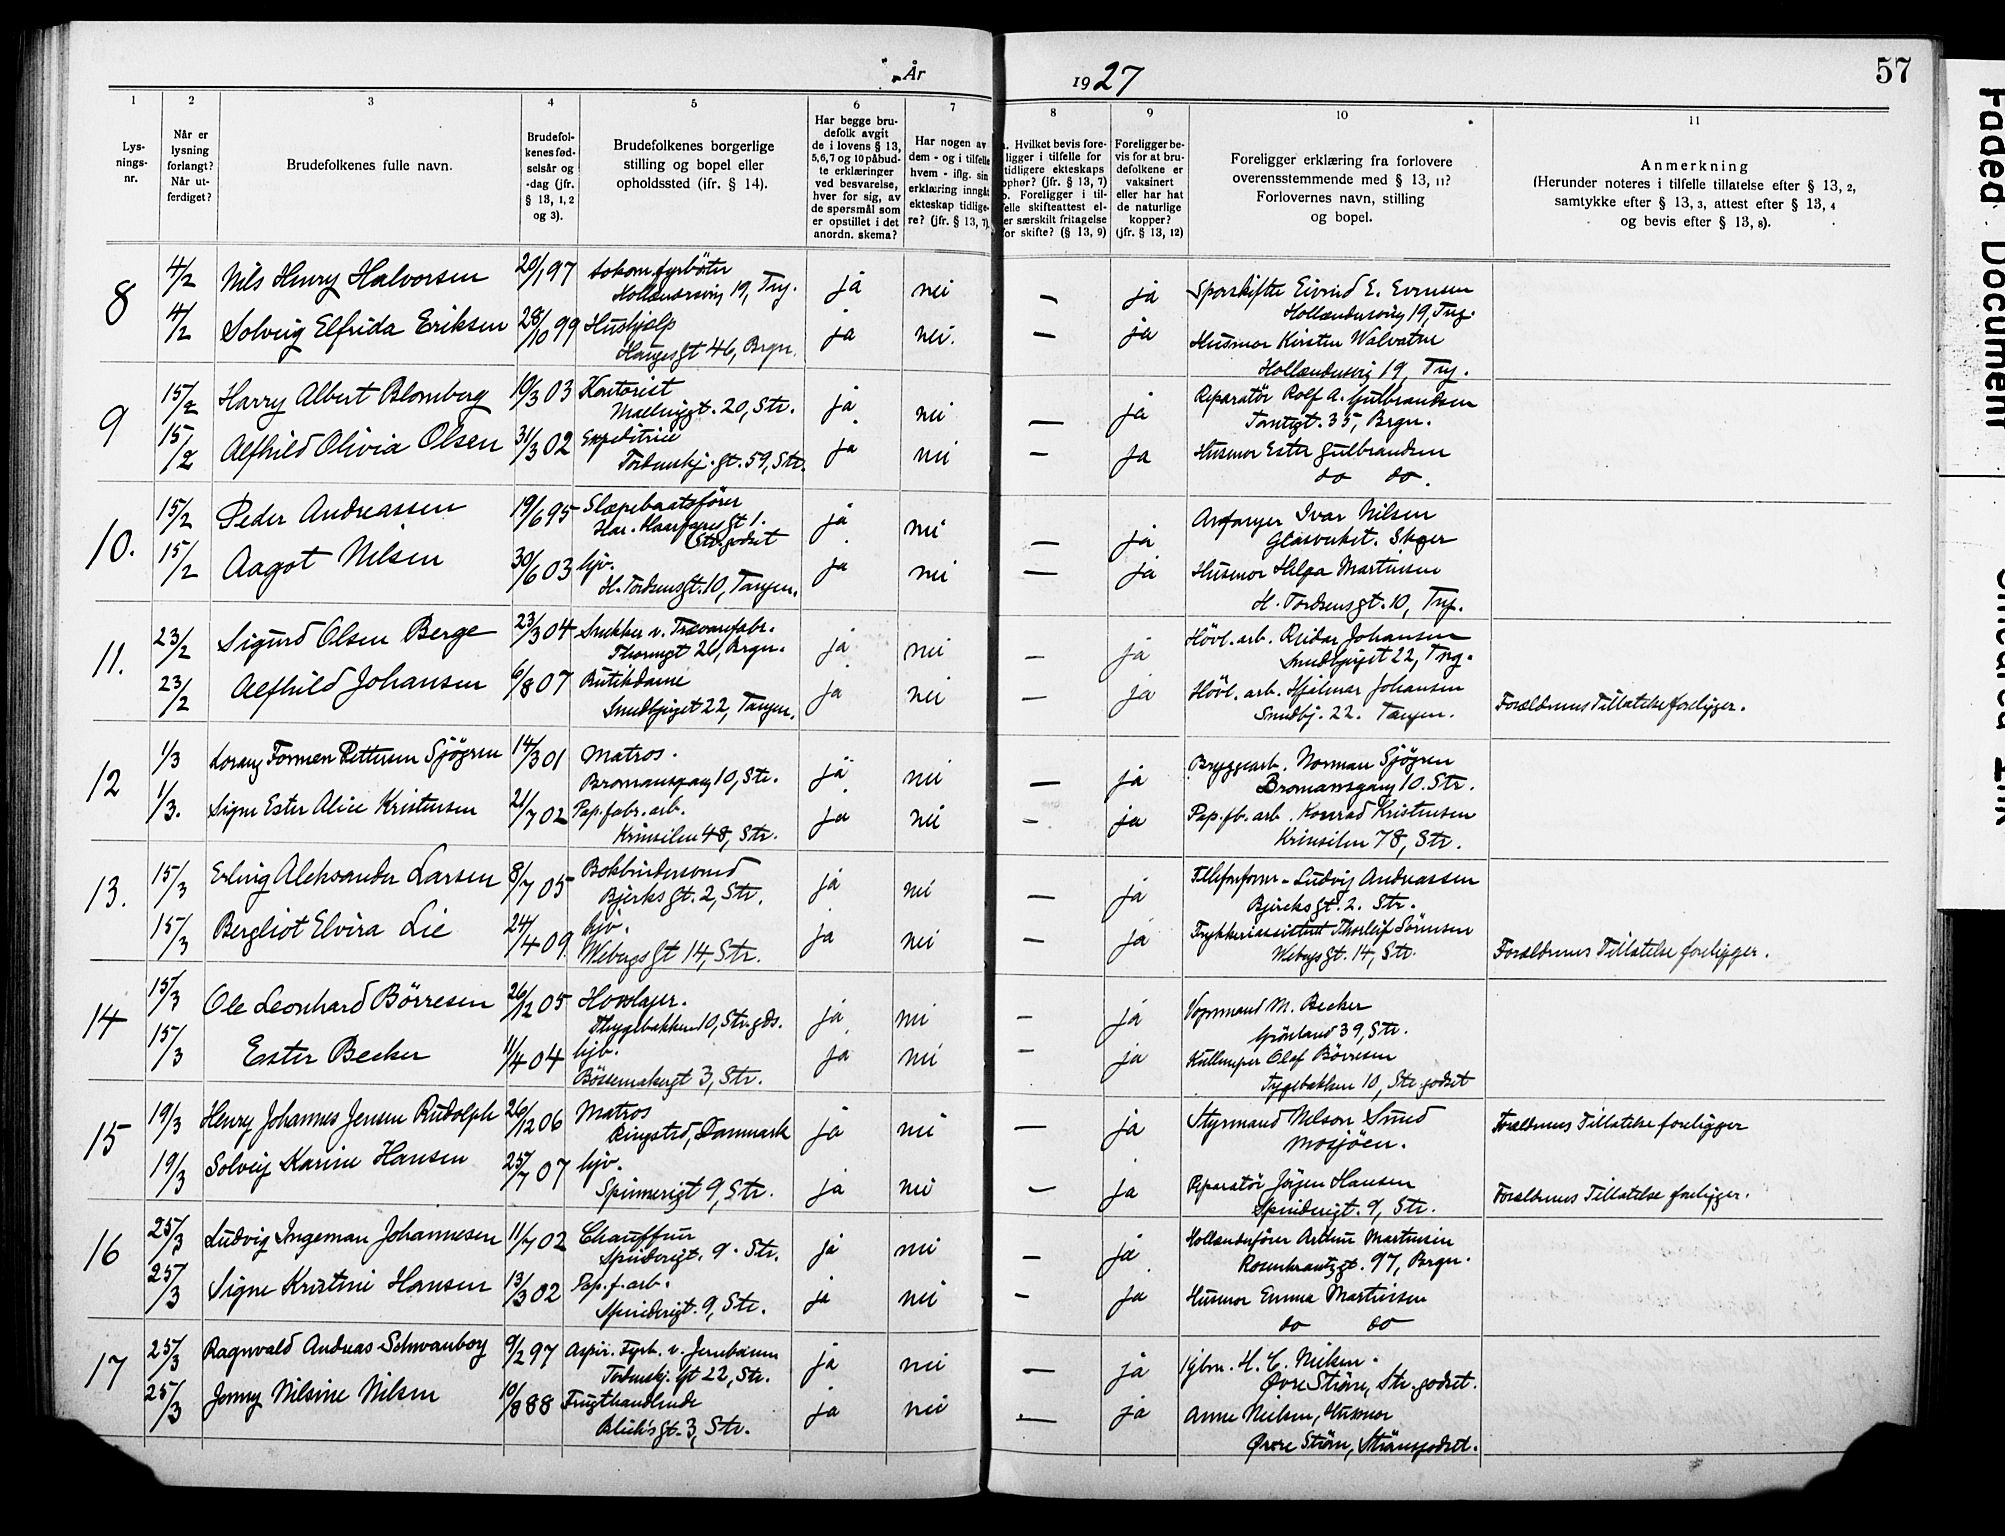 År 1927
57
1
2
3
4
5
6
7
8
9
10
11
Lys-
nings-
nr.
Når er
lysning
forlangt?
Når ut-
ferdiget?
Brudefolkenes fulle navn.
Brudefol-
kenes fød-
selsår og
-dag (jfr.
§ 13, 1, 2
og 3).
Brudefolkenes borgerlige
stilling og bopel eller
opholdssted (ifr. § 14).
Har begge bru-
defolk avgit
de i lovens § 13,
5,6,7 og 10 påbud-
te erklæringer
ved besvarelse,
hver for sig, av
de spørsmål som
er opstillet i det
anordn. skema?
Har nogen av
dem - og i tilfelle
hvem - iflg. sin
erklæring inngåt
ekteskap tidlige-
re? (jfr. § 13, 7)
a. Hvilket bevis fore-
ligger i tilfelle for
tidligere ekteskaps
ophør? (jfr. § 13, 7)
b. Foreligger i til-
felle skifteattest el-
ler særskilt fritagelse
for skifte? (§ 13, 9)
Foreligger be-
vis for at bru-
defolkene er
vaksinert
eller har hat
de naturlige
kopper?
(jfr. § 13, 12)
Foreligger erklæring fra forlovere
overensstemmende med § 13, 11?
Forlovernes navn, stilling
og bopel.
Anmerkning
(Herunder noteres i tilfelle tillatelse efter § 13, 2,
samtykke efter § 13, 3, attest efter § 13, 4
og bevis efter § 13, 8).
8 4/2 Nils Henry Halvorsen 20/1 97 Lokom.fyrbøter ja nei — ja Sporskifter Eivind E. Evensen
19, Tng. 19, Tng.
4/2 Solveig Elfrida Eriksen 28/10 99 Hushjelp ja nei. — ja Husmor Kirsten
Haugesgt 46, Brgn. 19, Tng.
9 15/2 Harry Albert Blomberg 10/3 03 Kontorist ja nei — ja Reparatør Rolf A. Gulbrandsen
20, Str. Tomtegt. 35, Brgn.
15/2 Alfhild Olivia Olsen 31/3 02 Expeditrice ja nei — ja Husmor Ester Gulbrandsen
Tordenskj. gt. 59, Str. do do.
10. 15/2 Peder Andreassen 19/6 95 Slæpebaatsfører ja nei — ja Ivar Nilsen
Har. Haarfagresgt 1. Glasverket.
Str.godset
15/2 Aagot Nilsen 30/6 03 hjv. ja nei — ja Husmor Helga Martinsen
H. Tordsensgt. 10, Tangen. H. Tordsensgt. 10, Tng.
11. 23/2 Sigurd Olsen Berge 23/3 04 Snekker v. Trævarefabr. ja nei — ja Høvl. arb. Reidar Johansen
Brgn. Smedbjerget 22, Tng.
23/2 Alfhild Johansen 6/8 07 Butikdame ja nei — ja Høvl. arb. Hjalmar Johansen
Smedbjerget 22, Tangen. Smedbj. 22. Tangen. Forældrenes Tillatelse foreligger.
12 1/3 Formen Pettersen Sjøgren 14/3 01 Matros. ja nei — ja Bryggearb. Norman Sjøgren
Bromansgang 10, Str. Bromansgang 10. Str.
1/3. Signe Ester Alice Kristensen 21/7 02 Pap.fabr. arb. ja nei — ja Pap.fb. arb. Konrad Kristensen
48, Str. 78, Str.
13. 15/3 Erling Aleksander Larsen 8/7 05 Bokbindersvend ja nei — ja Ludvig Andreassen
Bjerksgt. 2, Str. Bjerksgt. 2. Str.
15/3 Bergliot Elvira Lie 24/4 09 hjv. ja nei — ja Trykkeriassistent Thorleif Sørensen
Webergsgt 14, Str. Webergsgt. 14, Str. Forældrenes Tillatelse foreligger.
14 15/3 Ole Leonhard Børresen 26/12 05 ja nei — ja Vognmand M. Becker
10, Str. gds. Grønland 39, Str.
15/3 Ester Becker 11/4 04 hjv. ja nei — ja Olaf Børresen
Bøssemakergt 3, Str. Tygebakken 10, Str.godset
15 19/3 Henry Johannes Jensen Rudolph 26/12 06 Matros ja nei — ja Styrmand Nelson
Ringsted, Danmark Mosjøen. Forældrenes Tillatelse foreligger
19/3 Solveig Karine Hansen 25/7 07 hjv. ja nei — ja Reparatør Jørgen Hansen
Spinnerigt 9, Str. Spinderigt. 9, Str. Forældrenes Tillatelse foreligger.
16 25/3 Ludvig Ingeman Johannesen 11/7 02 Chauffeur ja nei — ja Arthur Martinsen
Spinderigt. 9. Str. Rosenkrantzgt. 97, Brgn.
25/3 Signe Kristine Hansen 13/3 02 Pap. f. arb. ja nei — ja Husmor Emma Martinsen
Spinderigt. 9, Str. do do
17 25/3 Ragnvald Andreas Schwanborg 9/2 97 Aspir. Fyrb. v. Jernbanen ja nei — ja H. C. Nielsen.
Tordenskj. gt 22, Str. Øvre Strøm, Str. godset.
25/3 Jenny Nilsine Nilsen 10/8 88 Frugthandlende ja nei — ja Anne Nielsen, Husmor
3, Str. Øvre Strøm, Strømsgodset.
Faded Document